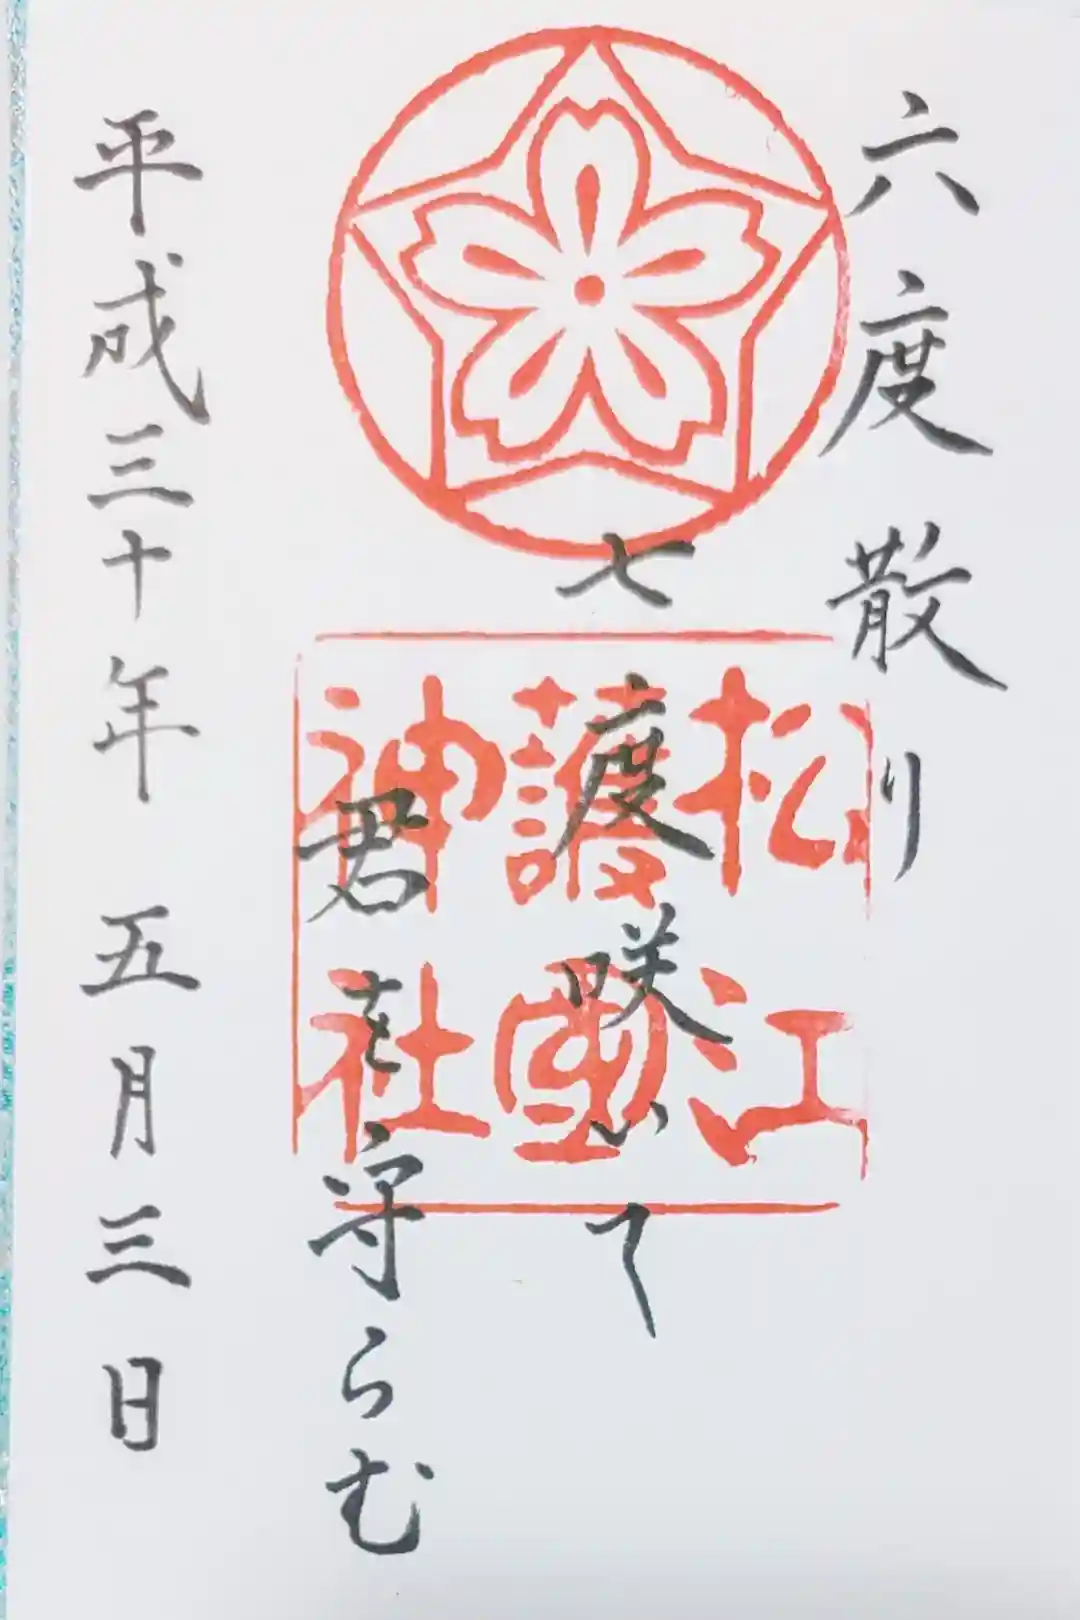 六度散り
七度咲いて
君を守らむ
平成三十年 五月三日
松江
護國
神社